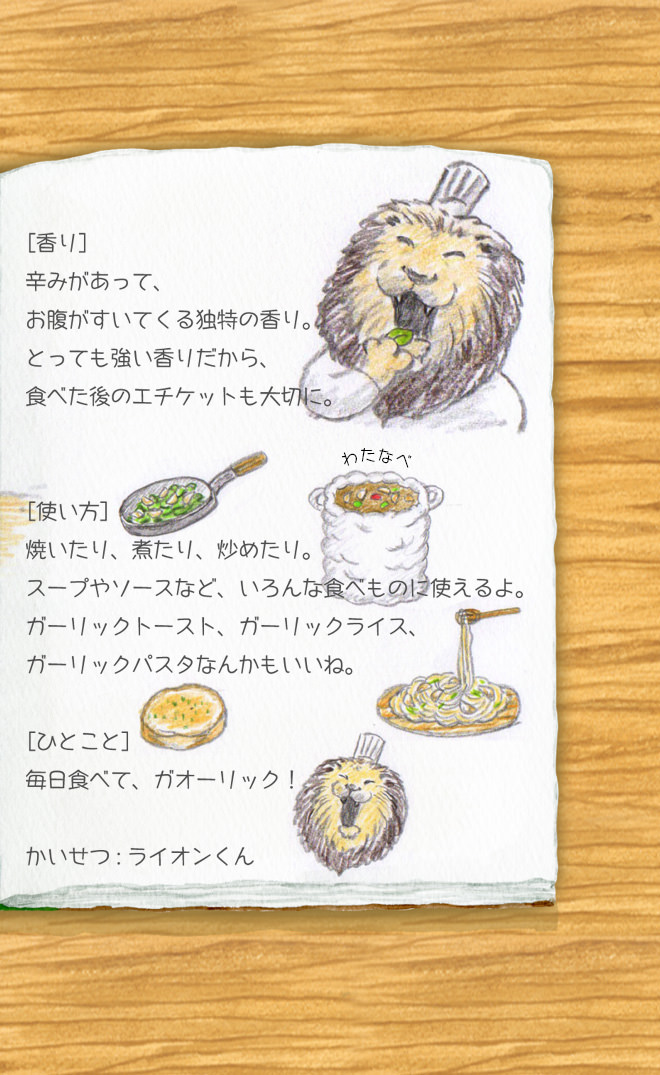 [香り]
辛みがあって、
お腹がすいてくる独特の香り。
とっても強い香りだから、
食べた後のエチケットも大切に。
わたなべ
[使い方]
焼いたり、煮たり、炒めたり。
スープやソースなど、いろんな食べものに使えるよ。
ガーリックトースト、ガーリックライス、
ガーリックパスタなんかもいいね。
[ひとこと]
毎日食べて、ガオーリック！
かいせつ：ライオンくん